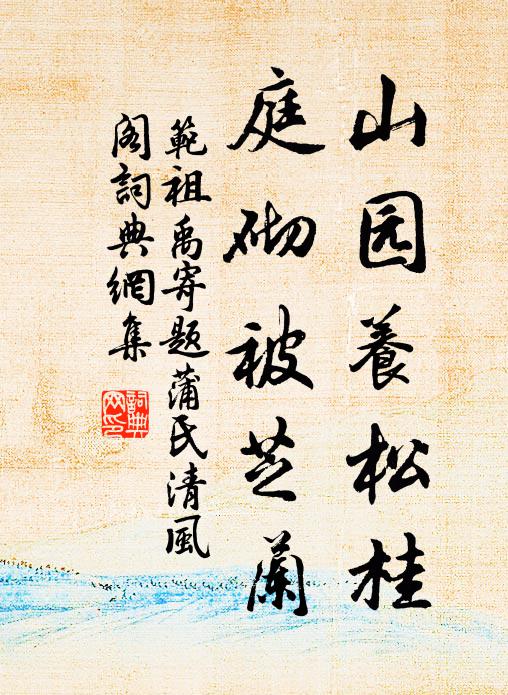 山园養松桂
庭砌被芝蘭
範祖禹寄题蒲氏清風
阁詞典網集
詞典网印